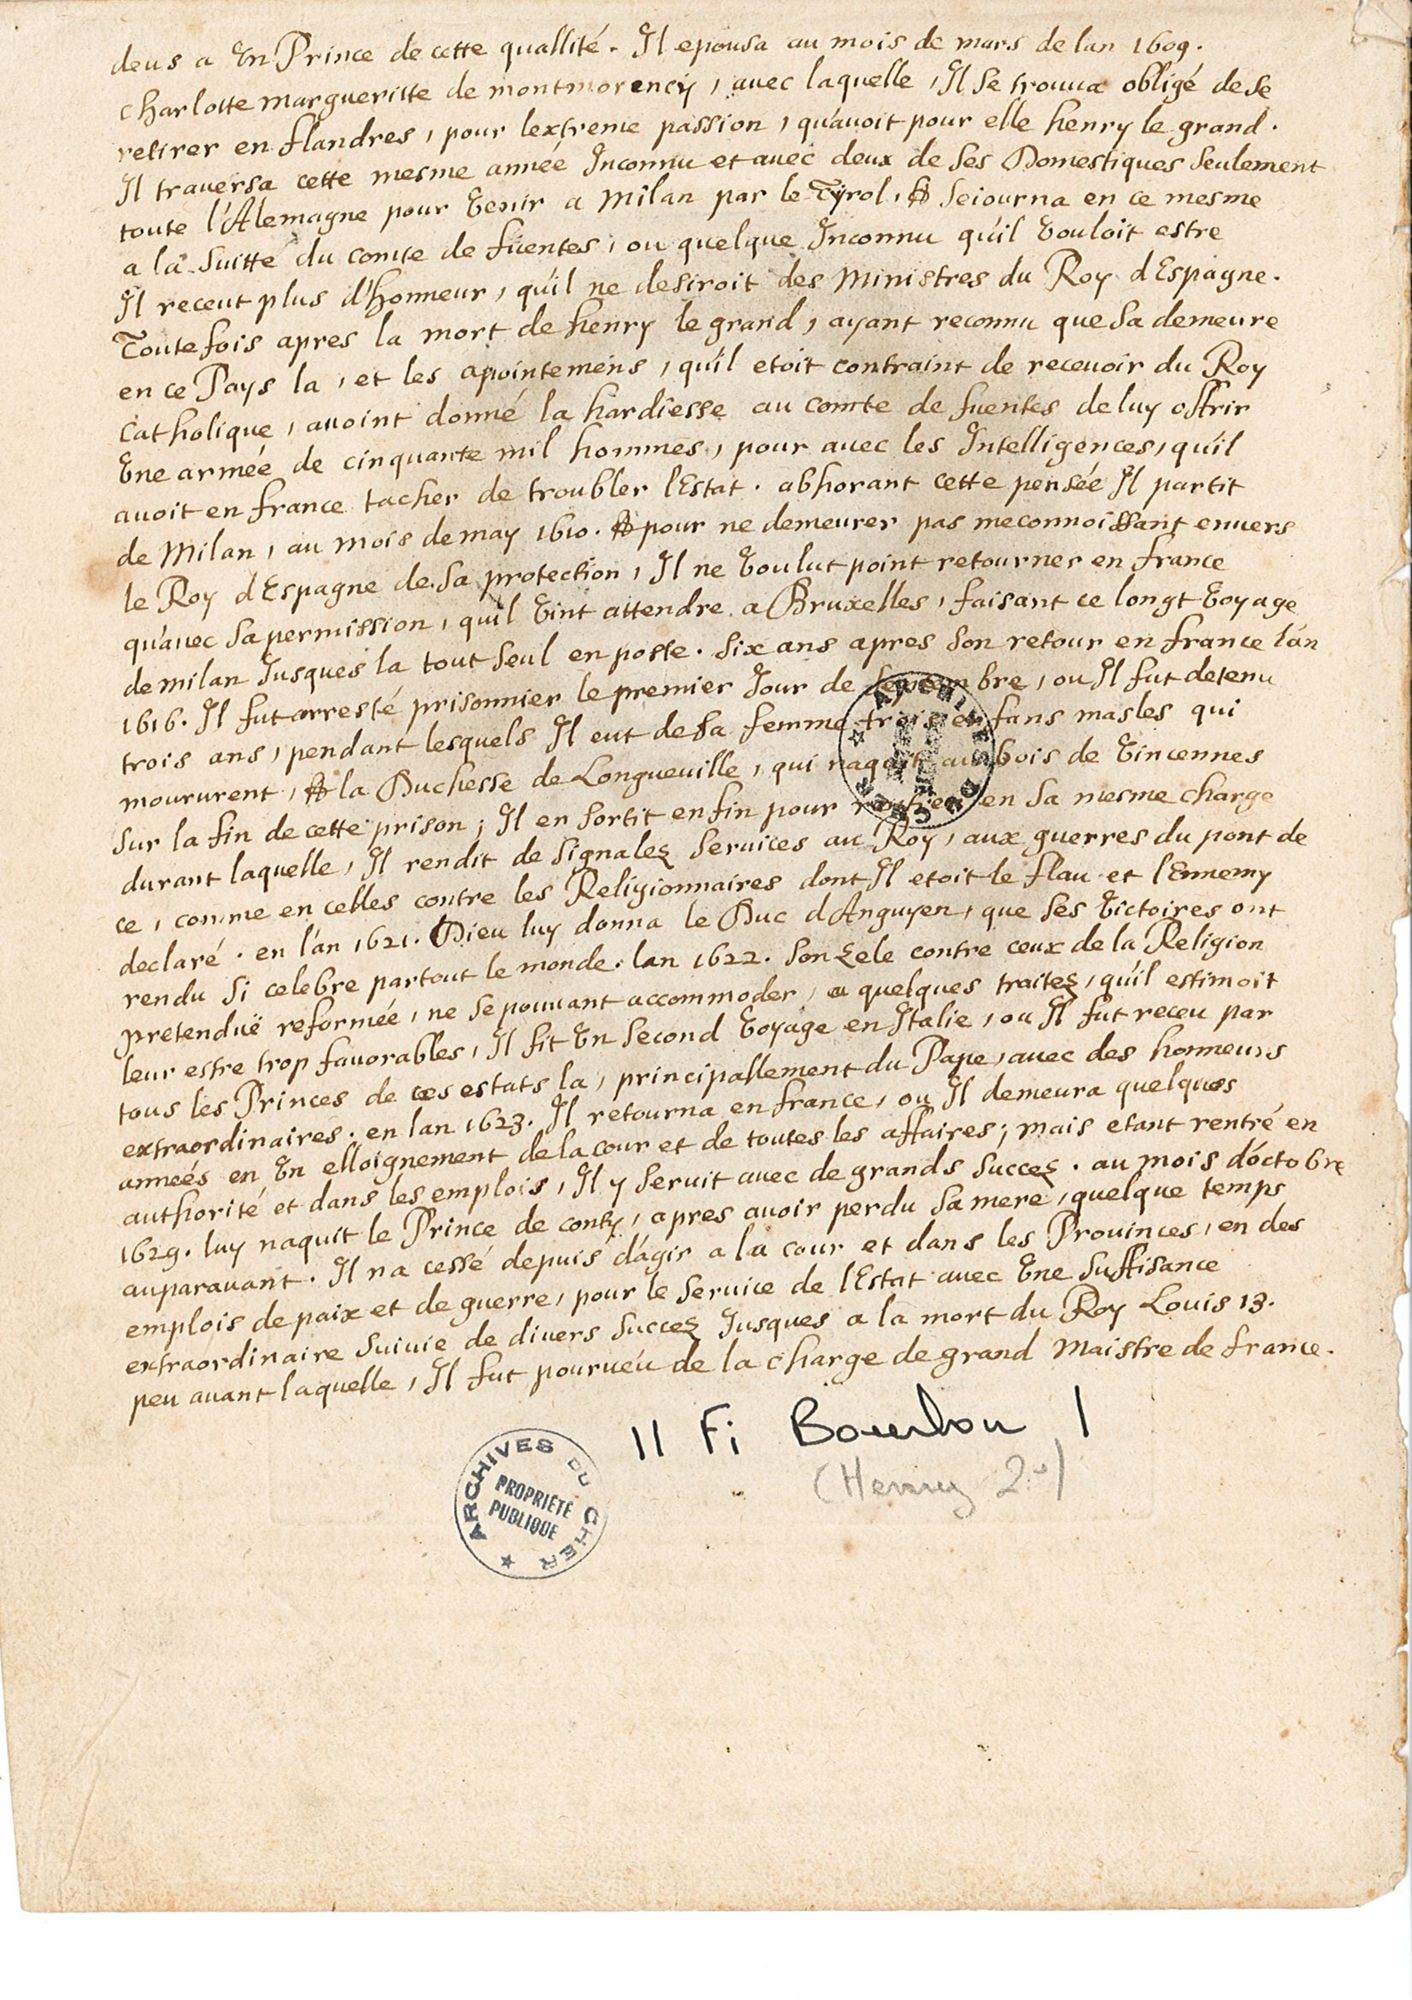 deus a Un Prince de cette quallité. Il epousa au mois de mars de lan 1609.
Charlotte margueritte de montmorency, avec laquelle, Il se trouva obligé de se
retirer en flandres, pour lextreme passion, qu'auoit pour elle henry le grand.
Il traversa cette mesme année Inconnu et avec deux de ses Domestiques seulement
toute l'Alemagne pour Venir a Milan par le Tyrol, & seiourna en ce mesme
a la suitte du comte de fuentes, ou quelque Inconnu qu'il Vouloit estre
Il receut plus d'honneur, qu'il ne desiroit des Ministres du Roy d'Espagne.
Toutefois apres la mort de henry le grand, ayant reconnu que sa demeure
en ce Pays la, et les apointemens, qu'il etoit contraint de receuoir du Roy
Catholique, auoint donné la hardiesse au comte de fuentes de luy offrir
Vne armée de cinquante mil hommes, pour avec les Intelligences, qu'il
auoit en france tacher de troubler l'Estat. abhorant cette pensée Il partit
de Milan, au mois de may 1610. & pour ne demeurer pas meconnoissant enuers
le Roy d'Espagne de sa protection, Il ne Voulut point retourner en france
qu'auec sa permission, qu'il Vint attendre a Bruxelles, faisant ce longt Voyage
de milan Jusques la tout seul en poste. six ans apres son retour en france l'an
1616. Il fut arresté prisonnier le premier Jour de septembre, ou Il fut detenu
trois ans, pendant lesquels Il eut de sa femme trois enfans masles qui
moururent, & la Duchesse de Longueville, qui naquit au bois de Vincennes
sur la fin de cette prison; Il en sortit enfin pour rentrer en sa mesme charge
durant laquelle, Il rendit de signalez services au Roy, aux guerres du pont de
ce, comme en celles contre les Religionnaires dont Il etoit le flau et l'Ennemy
declaré. en l'an 1621. Dieu luy donna le Duc d'Anguyen, que ses Victoires ont
rendu si celebre partout le monde. lan 1622. son zele contre ceux de la Religion
pretenduë reformée, ne se pouuant accommoder, a quelques traitez, qu'il estimoit
leur estre trop favorables, Il fit Un second Voyage en Italie, ou Il fut receu par
tous les Princes de ces estats la, principallement du Pape, avec des honneurs
extraordinaires. en lan 1623. Il retourna en france, ou Il demeura quelques
anneés en Un elloignement de la cour et de toutes les affaires; mais etant rentré en
authorité et dans les emplois, Il y seruit avec de grands succez. au mois d'octobre
1629. luy naquit le Prince de conty, apres auoir perdu sa mere, quelque temps
auparauant. Il na cessé depuis d'agir a la cour et dans les Prouinces, en des
emplois de paix et de guerre, pour le service de l'Estat avec Vne suffisance
extraordinaire suiuie de divers succez Jusques a la mort du Roy Louis 13.
peu auant laquelle, Il fut pourueu de la charge de grand Maistre de france.
11 Fi Bourbon 1
(Henry 2)
ARCHIVES DU CHER
PROPRIÉTÉ
PUBLIQUE